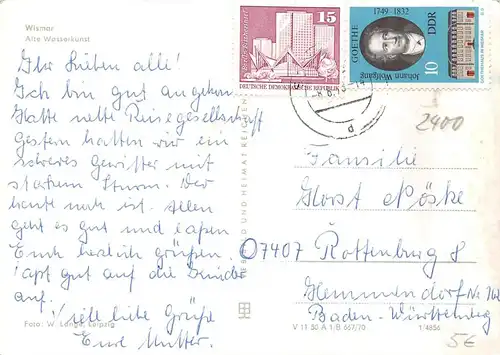 Wismar
Alte Wasserkunst
Ihr Lieben alle!
Ich bin gut angekom.
Hatte nette Reisegesellschaft
Gestern hatten wir ein
schweres Gewitter mit
starkem Sturm. Der
heute noch ist. Allen
geht es gut und lassen
Euch herzlich grüßen.
Papt gut auf die Kinder
auf.
Viele liebe Grüße
Eure Mutter.
Foto: W. Lange, Leipzig
BILD UND HEIMAT REICHENBACH
V 11 50 A 1/B 667/70
1/4856
Berlin-Fischerinsel
15
DEUTSCHE DEMOKRATISCHE REPUBLIK
GOETHE
1749 1832
Johann Wolfgang
DDR
10
2400
Familie
Horst
07407 Rottenburg 8
Hemmendorf Nr
Baden-Württemberg
5€